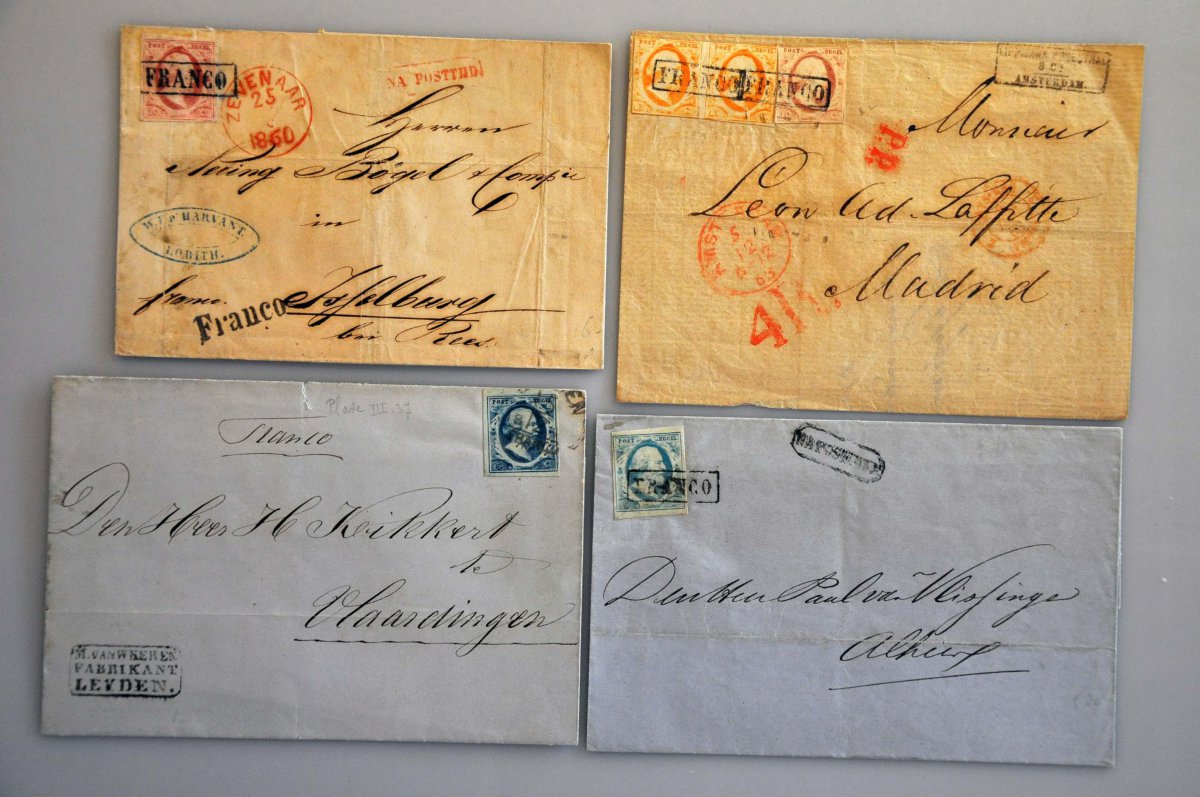 POST ZEGEL
FRANCO
ZEVENAAR
25
1860
NA POSTTIJD
Herren
Nering Bögel & Compie
in
W.F. HARVANT
LOBITH.
franco. Isselburg
Franco
bei Rees.
POST ZEGEL
POST ZEGEL
POST ZEGEL
FRANCO
FRANCO
8 Ct
AMSTERDAM.
PP
Monsieur
Leon Ad. Laffitte
Madrid
AMST
4
Plate III.37
POST ZEGEL
FRANCO
Franco
Den Heer H Kikkert
te
Vlaardingen
M. VAN WKEREN
FABRIKANT
LEYDEN.
POST ZEGEL
FRANCO
NA POSTTIJD
Den Heer Paul van Vlissinge
Alhier